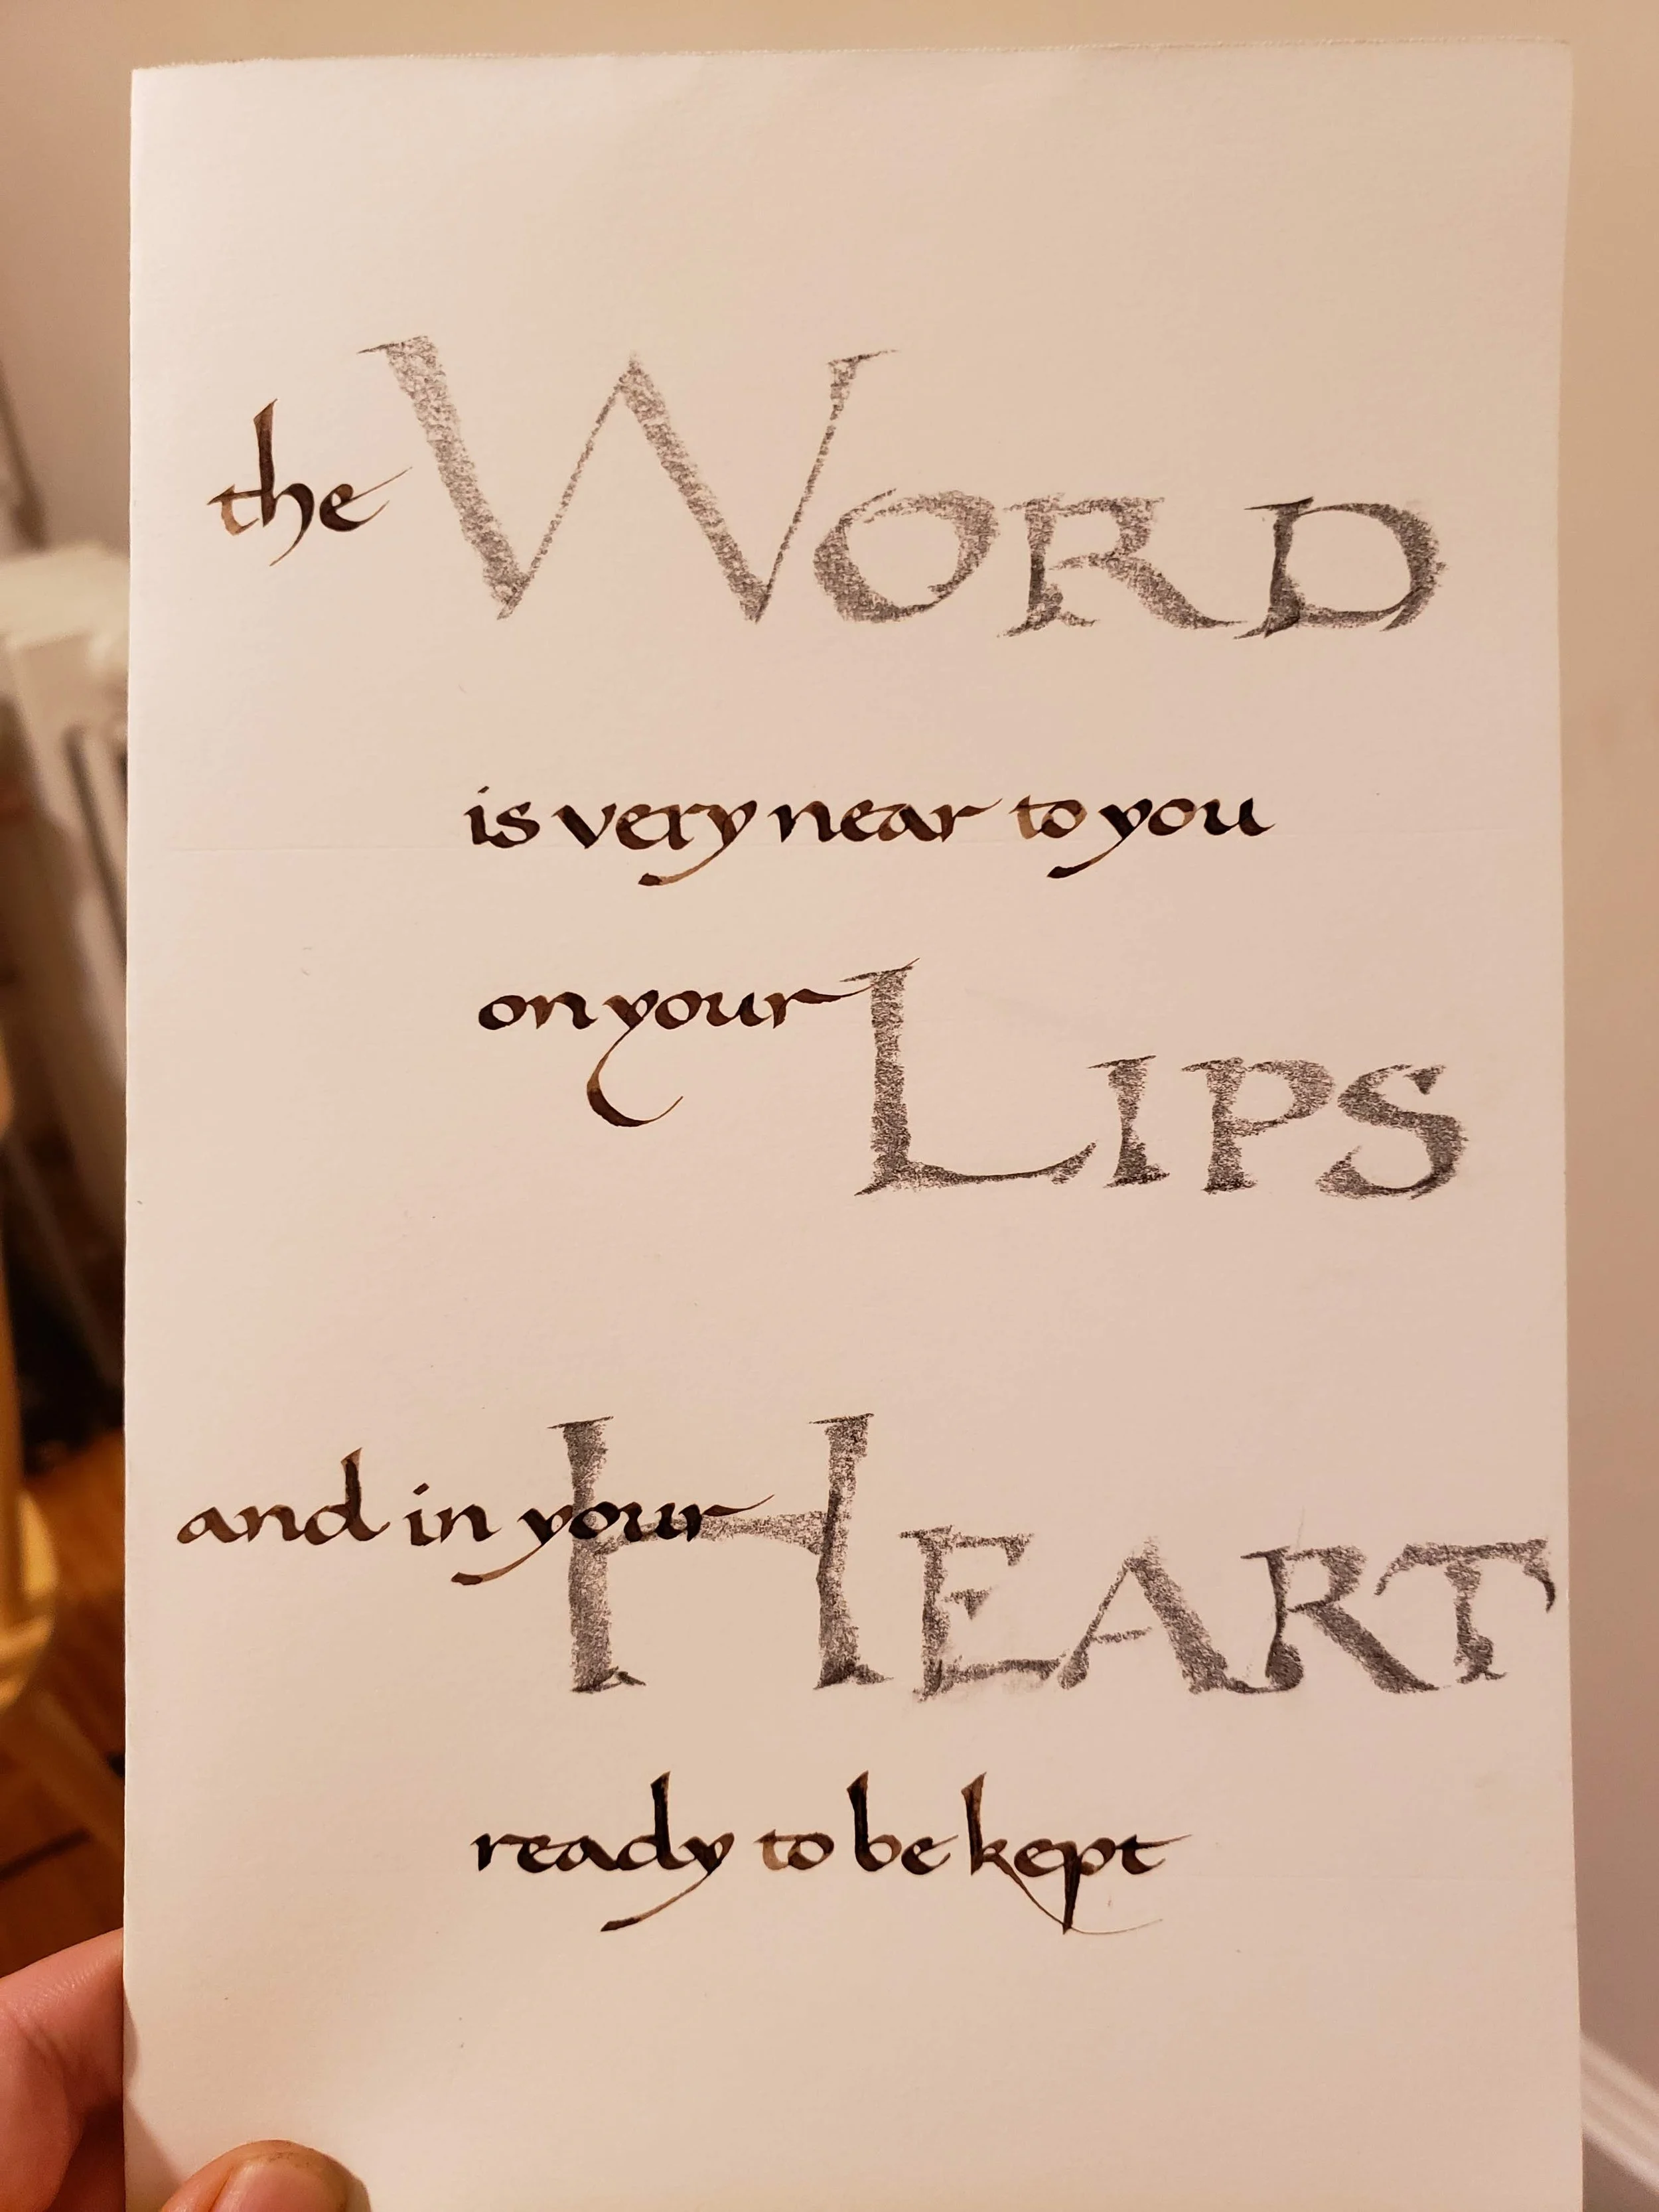 the WORD
is very near to you
on your LIPS
and in your HEART
ready to be kept